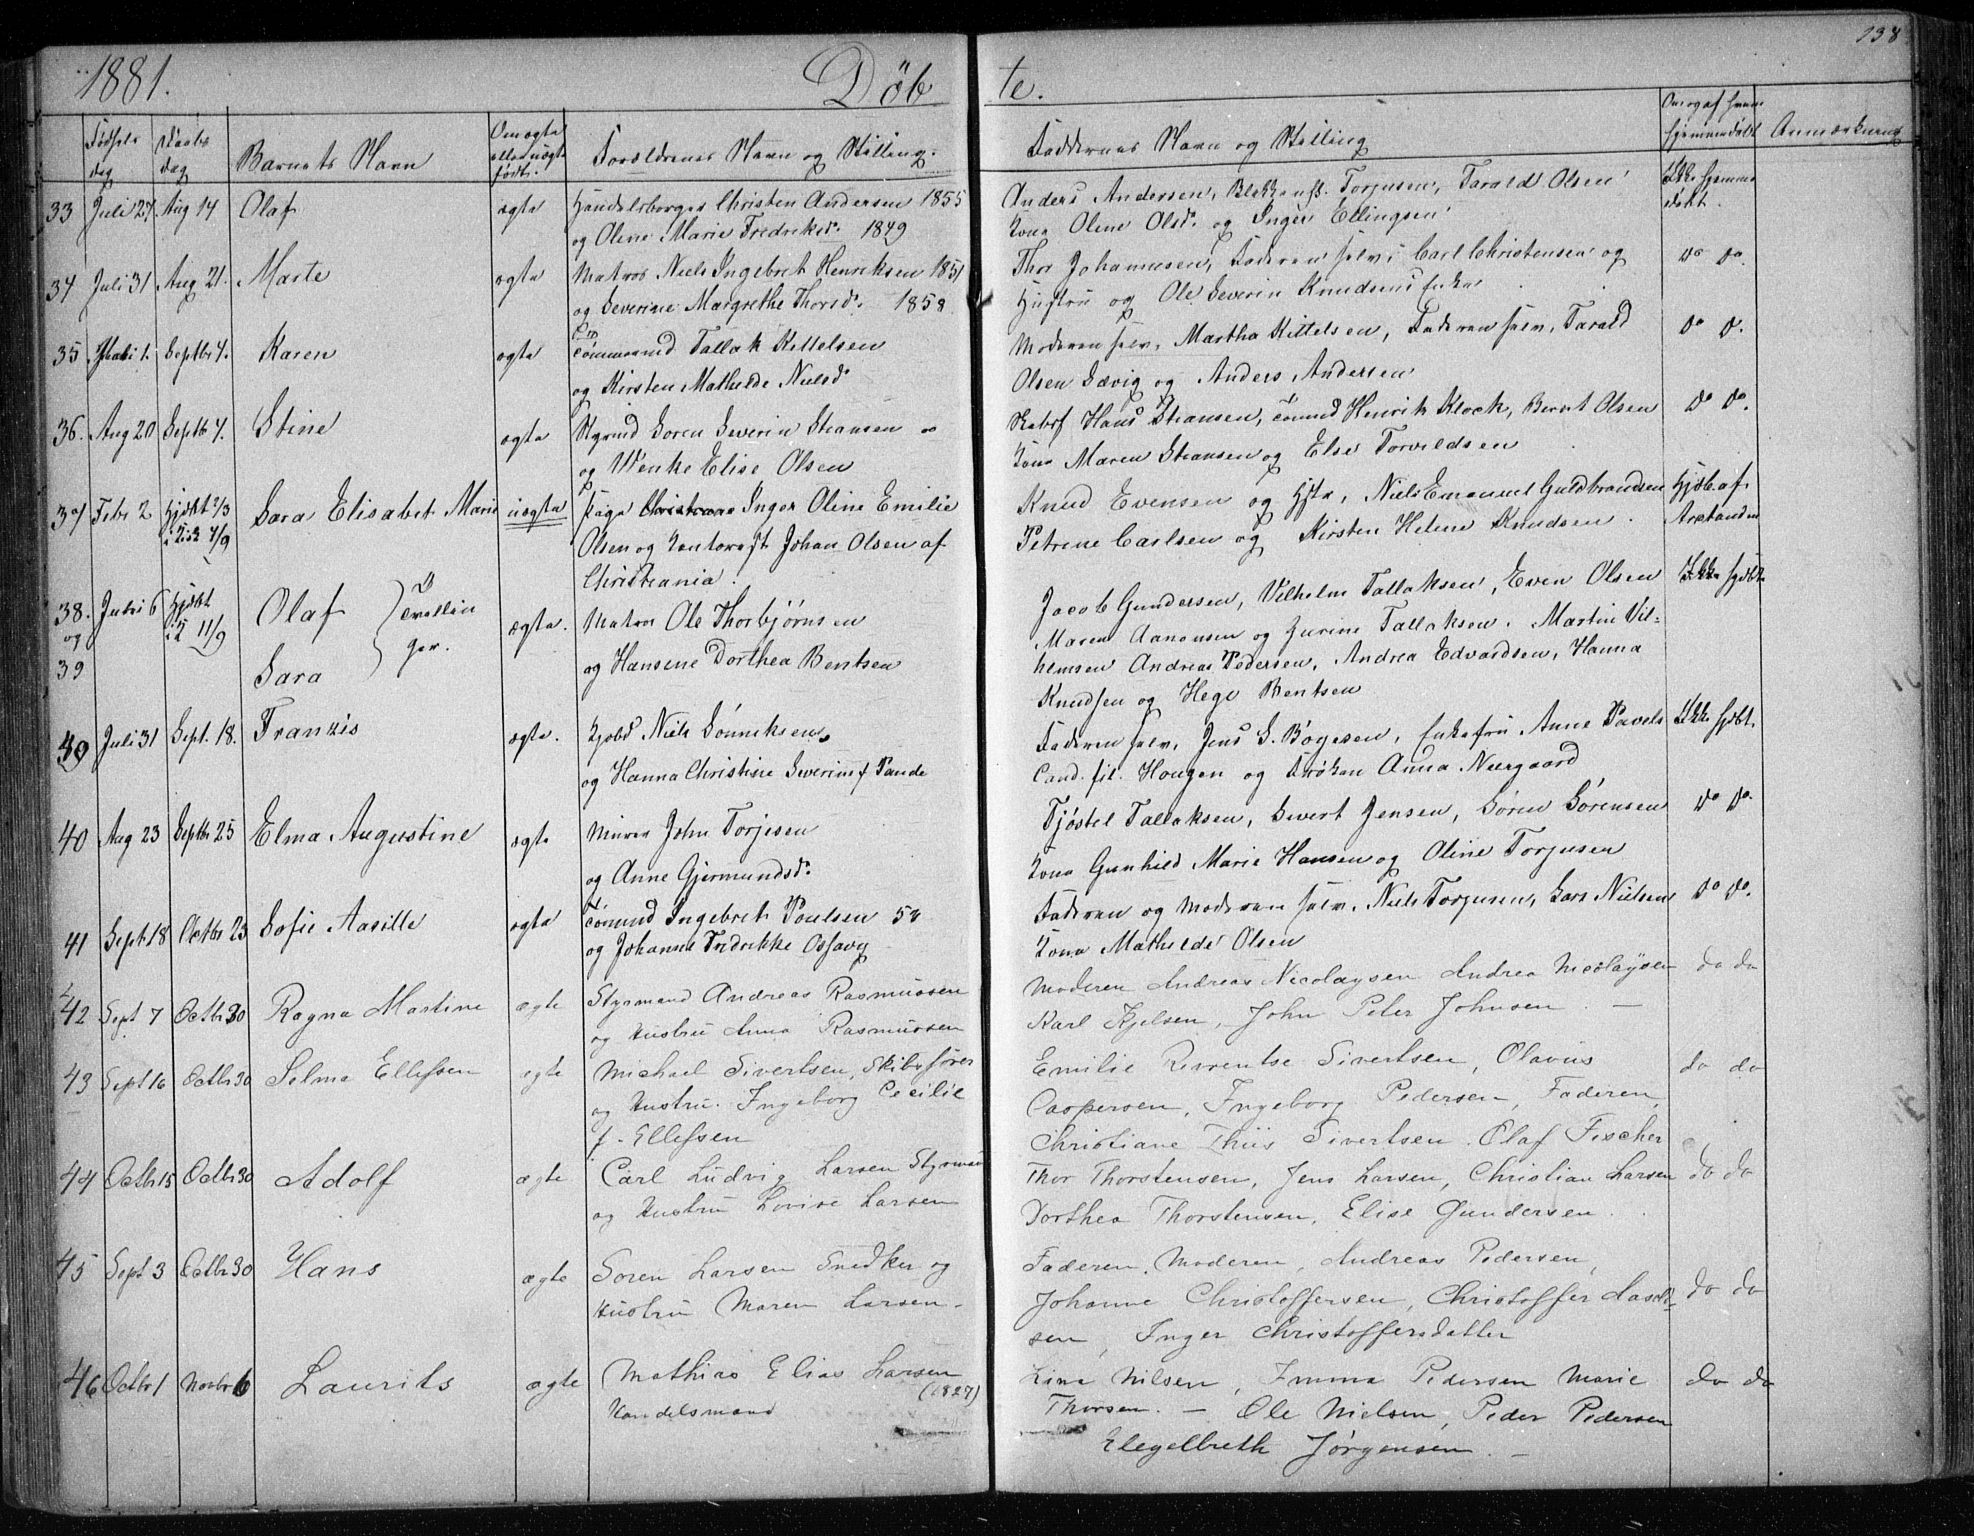 1881. Döb te. 138
Födsels Daabs Om ægte Om og af hvem
dag dag Barnets Navn eller uægte Forældrenes Navn og Stilling. Faddernes Navn og Stilling hjemmedöbt Anmærkning
födt.
33 Juli 27 Aug 14 Olaf ægte Handelsborger Christen Andersen 1855 Anders Andersen, Torjusen, Tarald Olsen Ikke hjemme
og Oline Marie Fredriksd. 1849 Kona Olene Olsd. og Inger Ellingsen döbt.
34 Juli 31 Aug 21. Marte ægte Matros Niels Ingebret Henriksen 1851 Thor Johannesen, Faderen selv, Carl Christensen og do do.
og Severine Margrethe Thorsd. 1858 Hustru og Ole Severin Knudsens Enke
35 Juli 1. Septbr 4. Karen ægte Tömmermd Tallak Kittelsen Moderen selv, Martha Kittelsen, Faderen selv, Tarald do d.
og Kirsten Mathilde Nielsd. Olsen Sævig og Anders Andersen
36. Aug 20 Septbr 4. Stine ægte Styrmd Sören Severin Stiansen Hans Stiansen, Tömmd Henrik Klock, Bernt Olsen do do.
og Wenke Elise Olsen Kona Maren Stiansen og Else Torvildsen
37 Febr 2 Hjdöbt 2/3 Sara Elisabet Marie uægte Pige Inger Oline Emilie Knud Evensen og Hstr, Niels Emanuel Guldbrandsen Hjdöb af
7/9 Olsen og Kontorist Johan Olsen af Petrine Carlsen og Kirsten Helene Knudsen.
Christiania.
38. Juli 6 Hjdöbt Olaf Tvillin Matros Ole Thorbjörnsen Jacob Gundersen, Vilhelm Tallaksen, Even Olsen Ikke hjdöbt
og 11/9 ger. ægte. Maren Aanonsen og Jurine Tallaksen. Martin Vil-
39 Sara og Hansene Dorthea Bentsen helmsen Andreas Pedersen, Andrea Edvardsen, Hanna
Knudsen og Hege Bentsen
40 Juli 31 Sept. 18. Franzis ægte. Kjöbd Niels Sönniksen Faderen selv, Jens S. Böyesen, Enkefru Anne Pavels Ikke hjdöbt.
og Hanna Christine Severine f Pande Cand. fil. Hougen og Fröken Anna Neergaard
40 Aug 23 Septbr 25 Elma Augustine ægte Murer John Torjesen Tjöstel Tallaksen, Sivert Jensen, Sören Sörensen do do.
og Anne Gjermundsd. Kona Gunhild Marie Hansen og Oline Torjusen
41 Sept 18 Octbr 23 Sofie Aasille ægte Tömmd Ingebret Poulsen 54 Faderen og Moderen selv, Niels Torjusen, Lars Nielsen do do.
og Johanne Fredrikke Kona Mathilde Olsen
42 Sept 7 Octbr 30 Ragna Martine ægte Styrmand Andreas Rasmussen Moderen Andreas Nicolaysen Andrea Nicolaysen do do
og Hustru Anna Rasmussen Karl Kjelsen, John Peter Johnsen. —
43 Sept 16 Octbr 30 Selma Ellefsen ægte Michael Sivertsen, Skibsförer Emilie Sivertsen, Olavus do do
og Hustru. Ingeborg Cecilie Caspersen, Ingeborg Pedersen, Faderen,
f. Ellefsen Christiane Thiis Sivertsen. Olaf Fischer
44 Octbr 15 Octbr 30 Adolf ægte Carl Ludvig Larsen Styrman Thor Thorstensen, Jens Larsen, Christian Larsen do do
og Hustru Lovise Larsen Dorthea Thorstensen, Elise Gundersen.
45 Sept 3 Octbr 30 Hans ægte Sören Larsen Snedker og Faderen, Moderen, Andreas Pedersen,
Hustru Maren Larsen. Johanne Christoffersen, Christoffer do do
sen, Inger Christoffersdatter
46 Octbr 1 Novbr 6 Laurits ægte Mathias Elias Larsen Lina Nilsen, Emma Pedersen Marie do do
(1827)
Handelsmand Thorsen. — Ole Nielsen, Peder Pedersen
Jörgensen. —